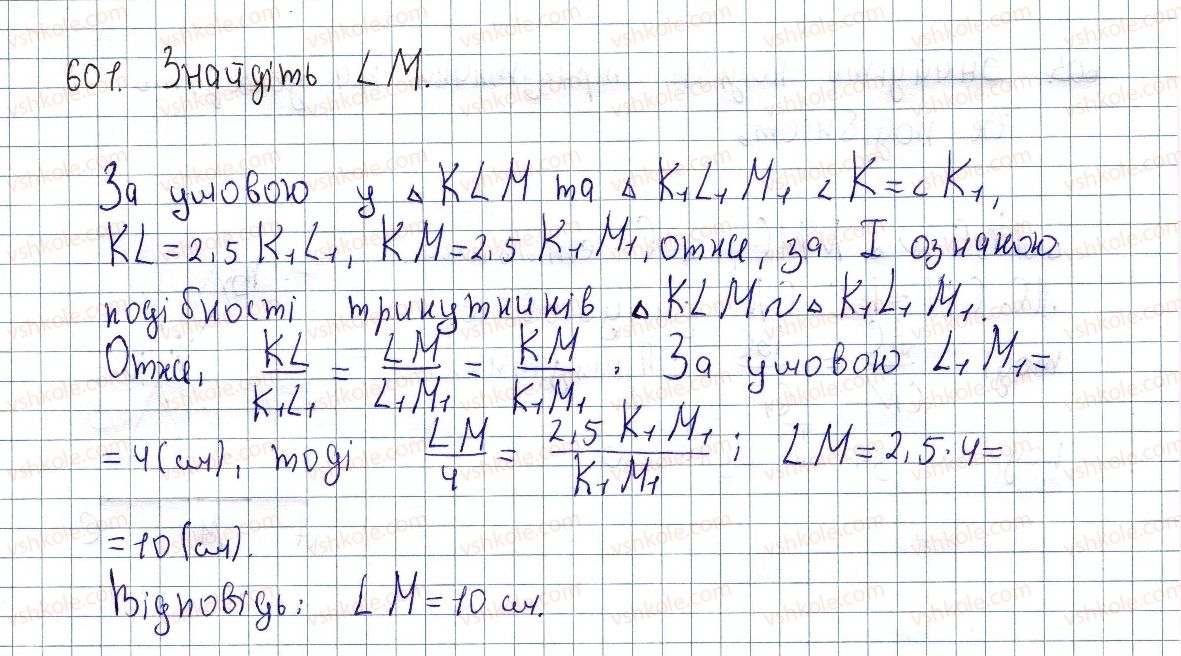 601. Знайдіть LM.
За умовою у △ KLM та △ K₁L₁M₁ ∠K=∠K₁,
KL=2,5 K₁L₁, KM=2,5 K₁M₁, отже, за I ознакою
подібності трикутників △ KLM ~ △ K₁L₁M₁.
Отже, KL/K₁L₁ = LM/L₁M₁ = KM/K₁M₁. За умовою L₁M₁=
=4(см), тоді LM/4 = 2,5 K₁M₁/K₁M₁; LM=2,5·4=
=10(см).
Відповідь: LM=10 см.